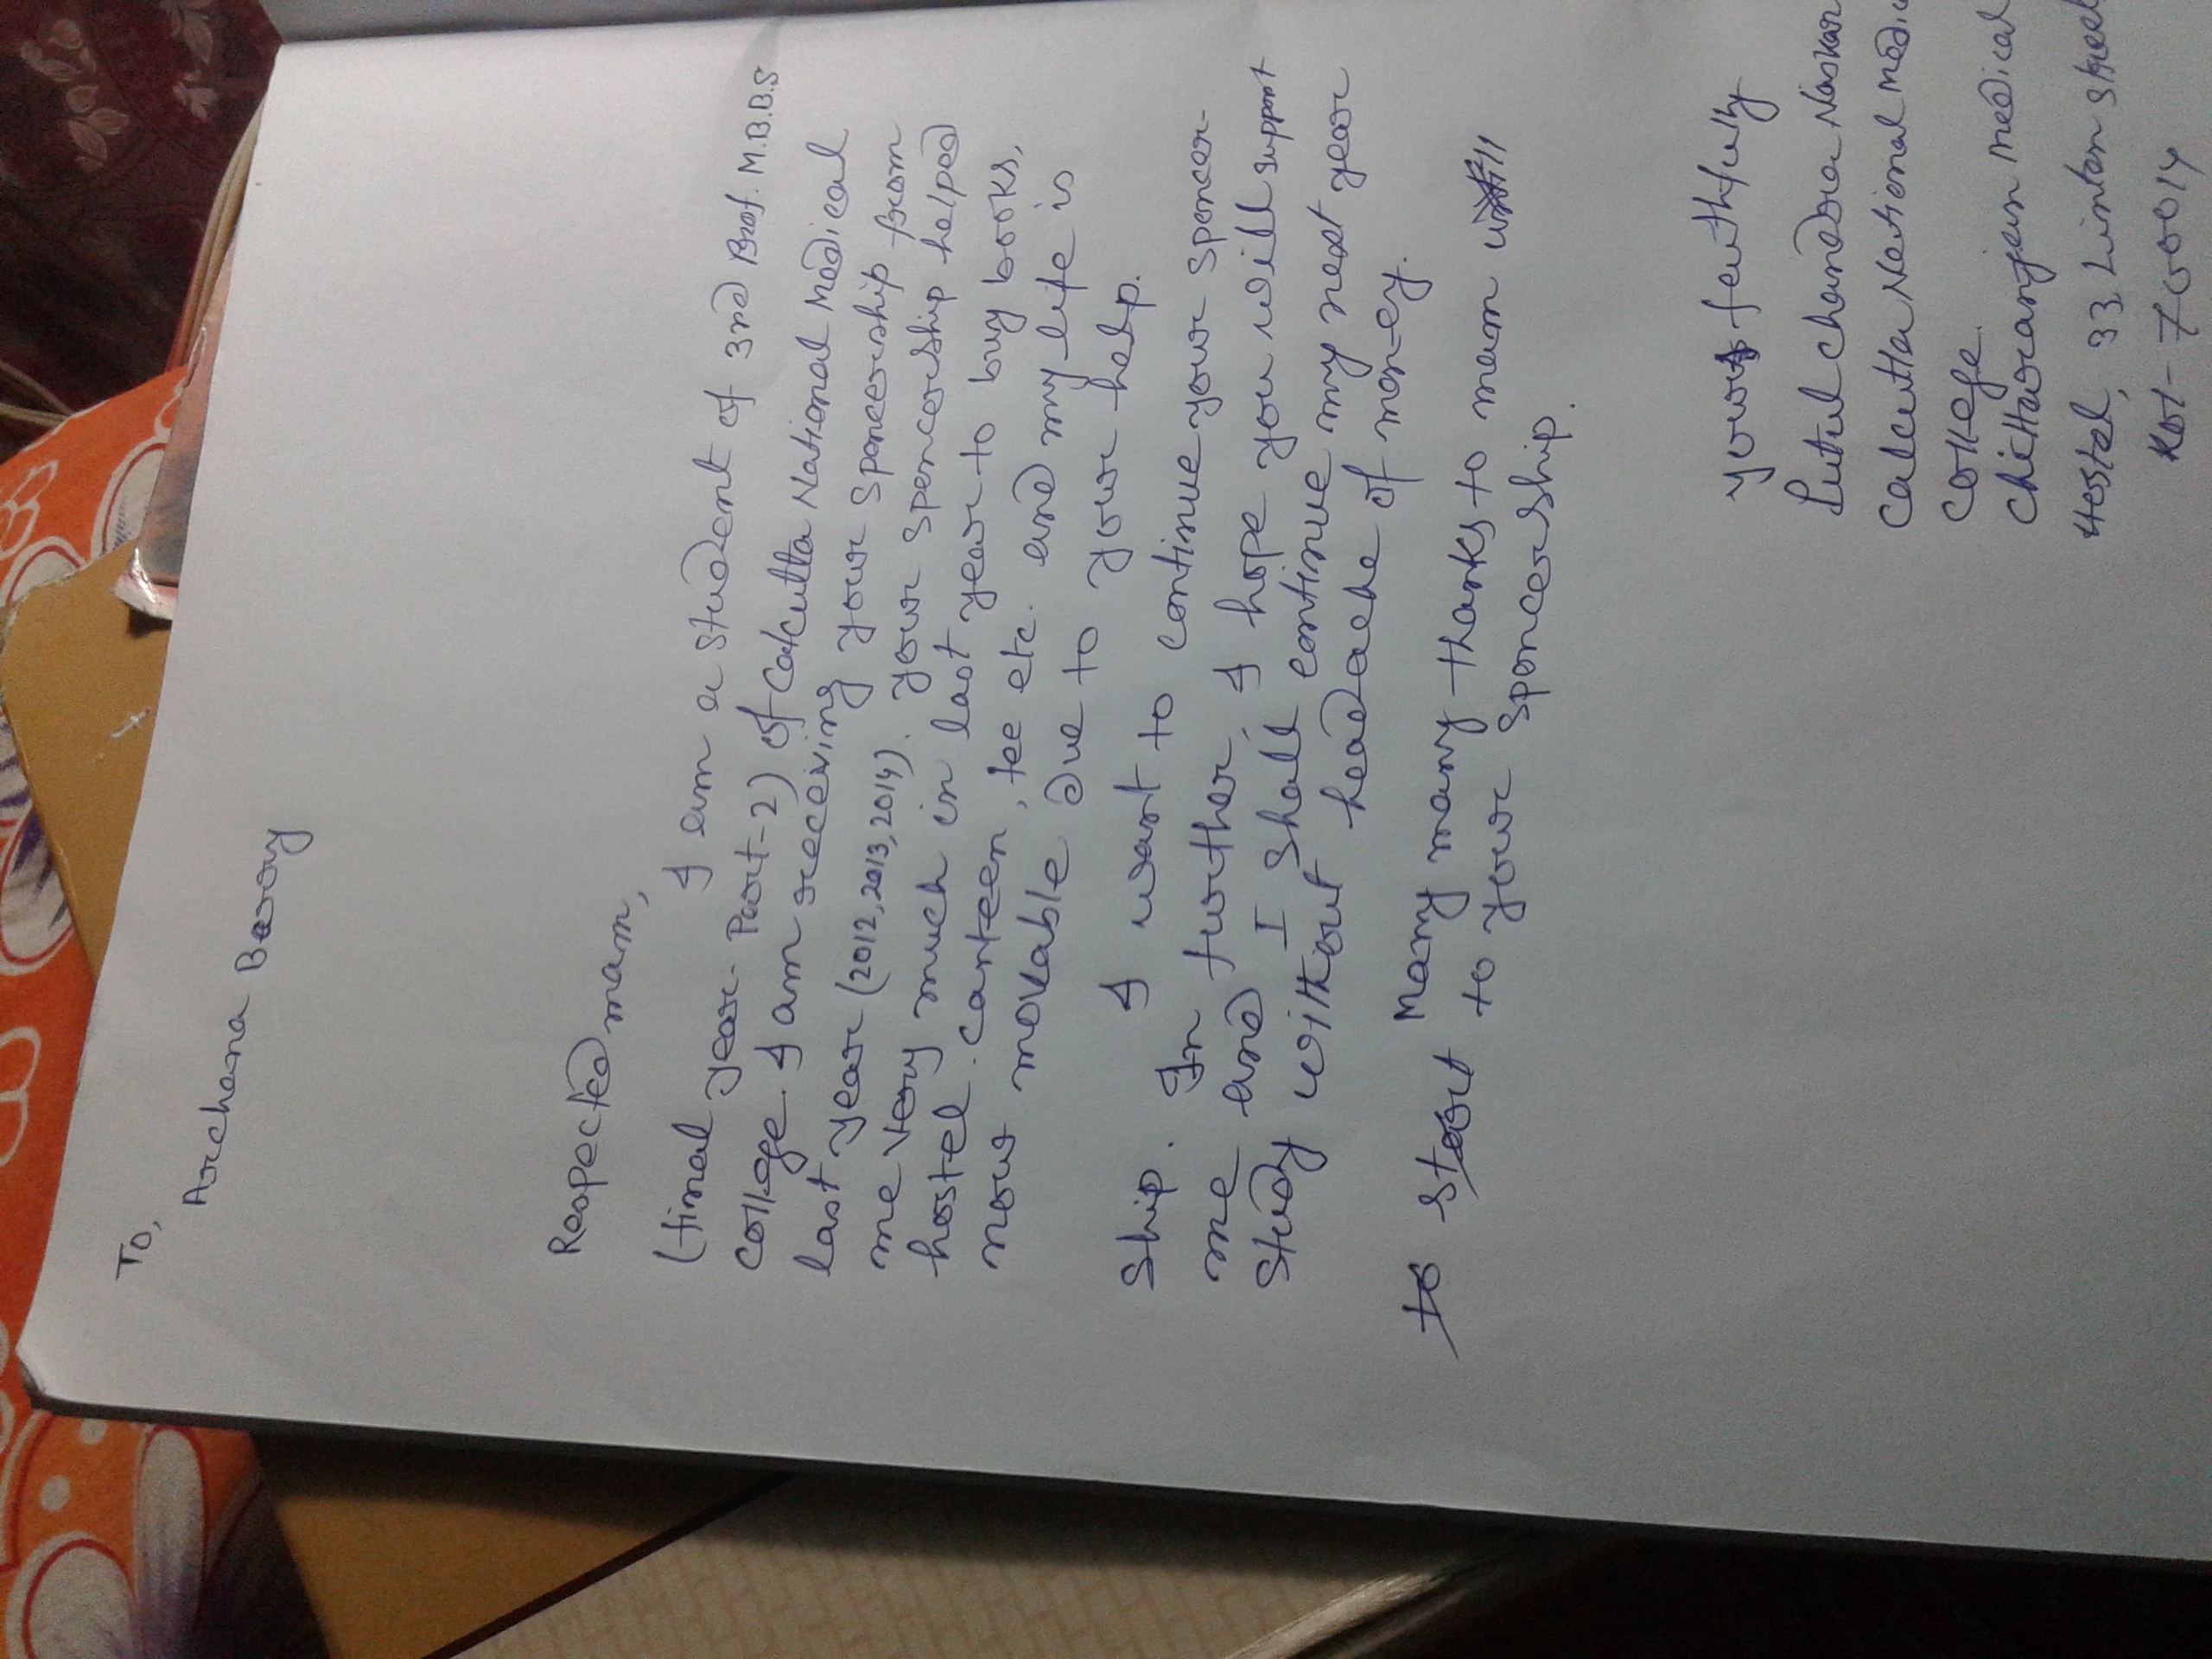 To,
Archana Berry
Respected mam,
I am a student of 3rd Prof. M.B.B.S
(final year Part-2) of Calcutta National Medical
College. I am receiving your sponcership from
last year (2012, 2013, 2014). your sponcership helped
me very much in last year to buy books,
hostel. canteen, fee etc. and my life is
now movable due to your help.
I want to continue your sponcer-
ship. In further, I hope you will support
me and I shall continue my next year
study without headache of mon-ey.
to start Many many thanks to mam
to your sponcership.
yours faithfully
Putul Chandra Naskar
Calcutta National Medic
College
Chittaranjan Medical
Hostel, 33 Linton Street
Kol-700014